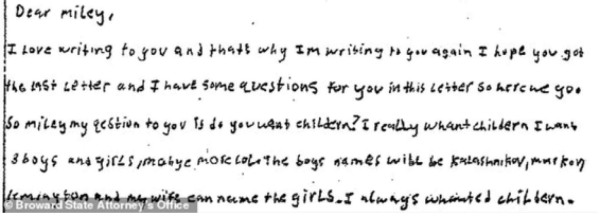 Dear Miley,
I Love writing to you and thats why Im writing to you again I hope you got
the last Letter and I have some questions for you in this Letter so here we go.
So miley my qestion to you is do you want childern? I really whant childern I want
8 boys and girls, mabye more lolo the boys names will be Kalashnikov,
and my wife can name the girls. I always whanted childern.
© Broward State Attorney's Office